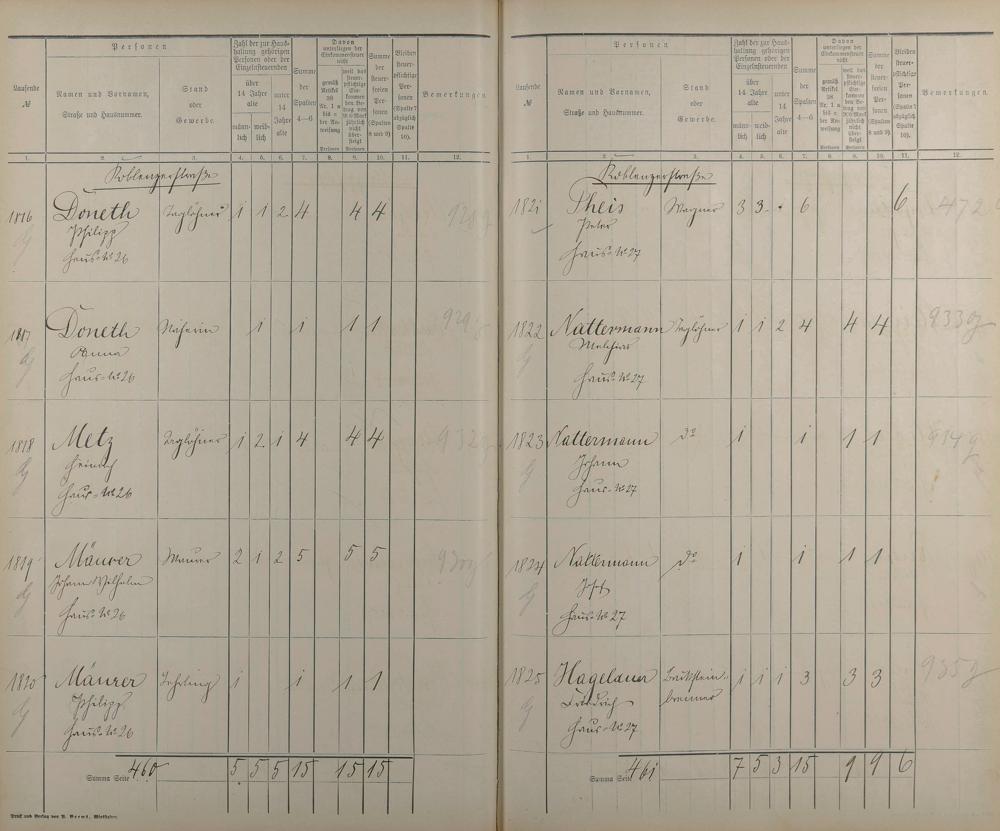 Laufende
№
Personen
Namen und Vornamen,
Straße und Hausnummer.
Stand
oder
Gewerbe.
Zahl der zur Haus-
haltung gehörigen
Personen oder der
Einzelnsteuernden
über
14 Jahre
alte
männ-
lich
weib-
lich
unter
14
Jahre
alte
Summe
der
Spalten
4—6
Davon
unterliegen der
Einkommensteuer
nicht
Summe
der
steuer-
freien
Per-
sonen
(Spalten
8 und 9)
Bleiben
steuer-
pflichtige
Per-
sonen
(Spalte 7
abzüglich
Spalte
10).
Bemerkungen.
1. 2. 3. 4. 5. 6. 7. 8. 9. 10. 11. 12.
Koblenzerstraße
1816 Doneth Taglöhner 1 1 2 4 4 4
Philipp
Haus-№ 26
1817 Doneth Näherin 1 1 1 1 929
Anna
Haus-№ 26
1818 Metz Taglöhner 1 2 1 4 4 4 932
Heinrich
Haus-№ 26
1819 Mäurer Maurer 2 1 2 5 5 5 930
Johann Wilhelm
Haus-№ 26
1820 Mäurer Lehrling 1 1 1 1
Philipp
Haus-№ 26
Summa Seite 460 5 5 5 15 15 15
Druck und Verlag von
Laufende
№
Personen
Namen und Vornamen,
Straße und Hausnummer.
Stand
oder
Gewerbe.
Zahl der zur Haus-
haltung gehörigen
Personen oder der
Einzelnsteuernden
über
14 Jahre
alte
männ-
lich
weib-
lich
unter
14
Jahre
alte
Summe
der
Spalten
4—6
Davon
unterliegen der
Einkommensteuer
nicht
Summe
der
steuer-
freien
Per-
sonen
(Spalten
8 und 9)
Bleiben
steuer-
pflichtige
Per-
sonen
(Spalte 7
abzüglich
Spalte
10).
Bemerkungen.
1. 2. 3. 4. 5. 6. 7. 8. 9. 10. 11. 12.
Koblenzerstraße
1821 Theis Wagner 3 3 . 6 6 472
Peter
Haus-№ 27
1822 Nattermann Taglöhner 1 1 2 4 4 4 933
Melchior
Haus-№ 27
1823 Nattermann do 1 1 1 1 934
Johann
Haus-№ 27
1824 Nattermann do 1 1 1 1
Josef
Haus-№ 27
1825 Hagelauer 1 1 1 3 3 3 935
Friedrich brenner
Haus-№ 27
Summa Seite 461 7 5 3 15 9 9 6